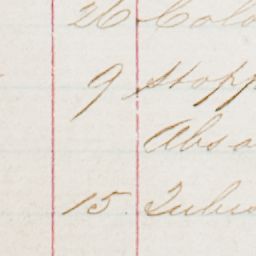 26 Colo
9 Stopp
Abso
15. Tubu